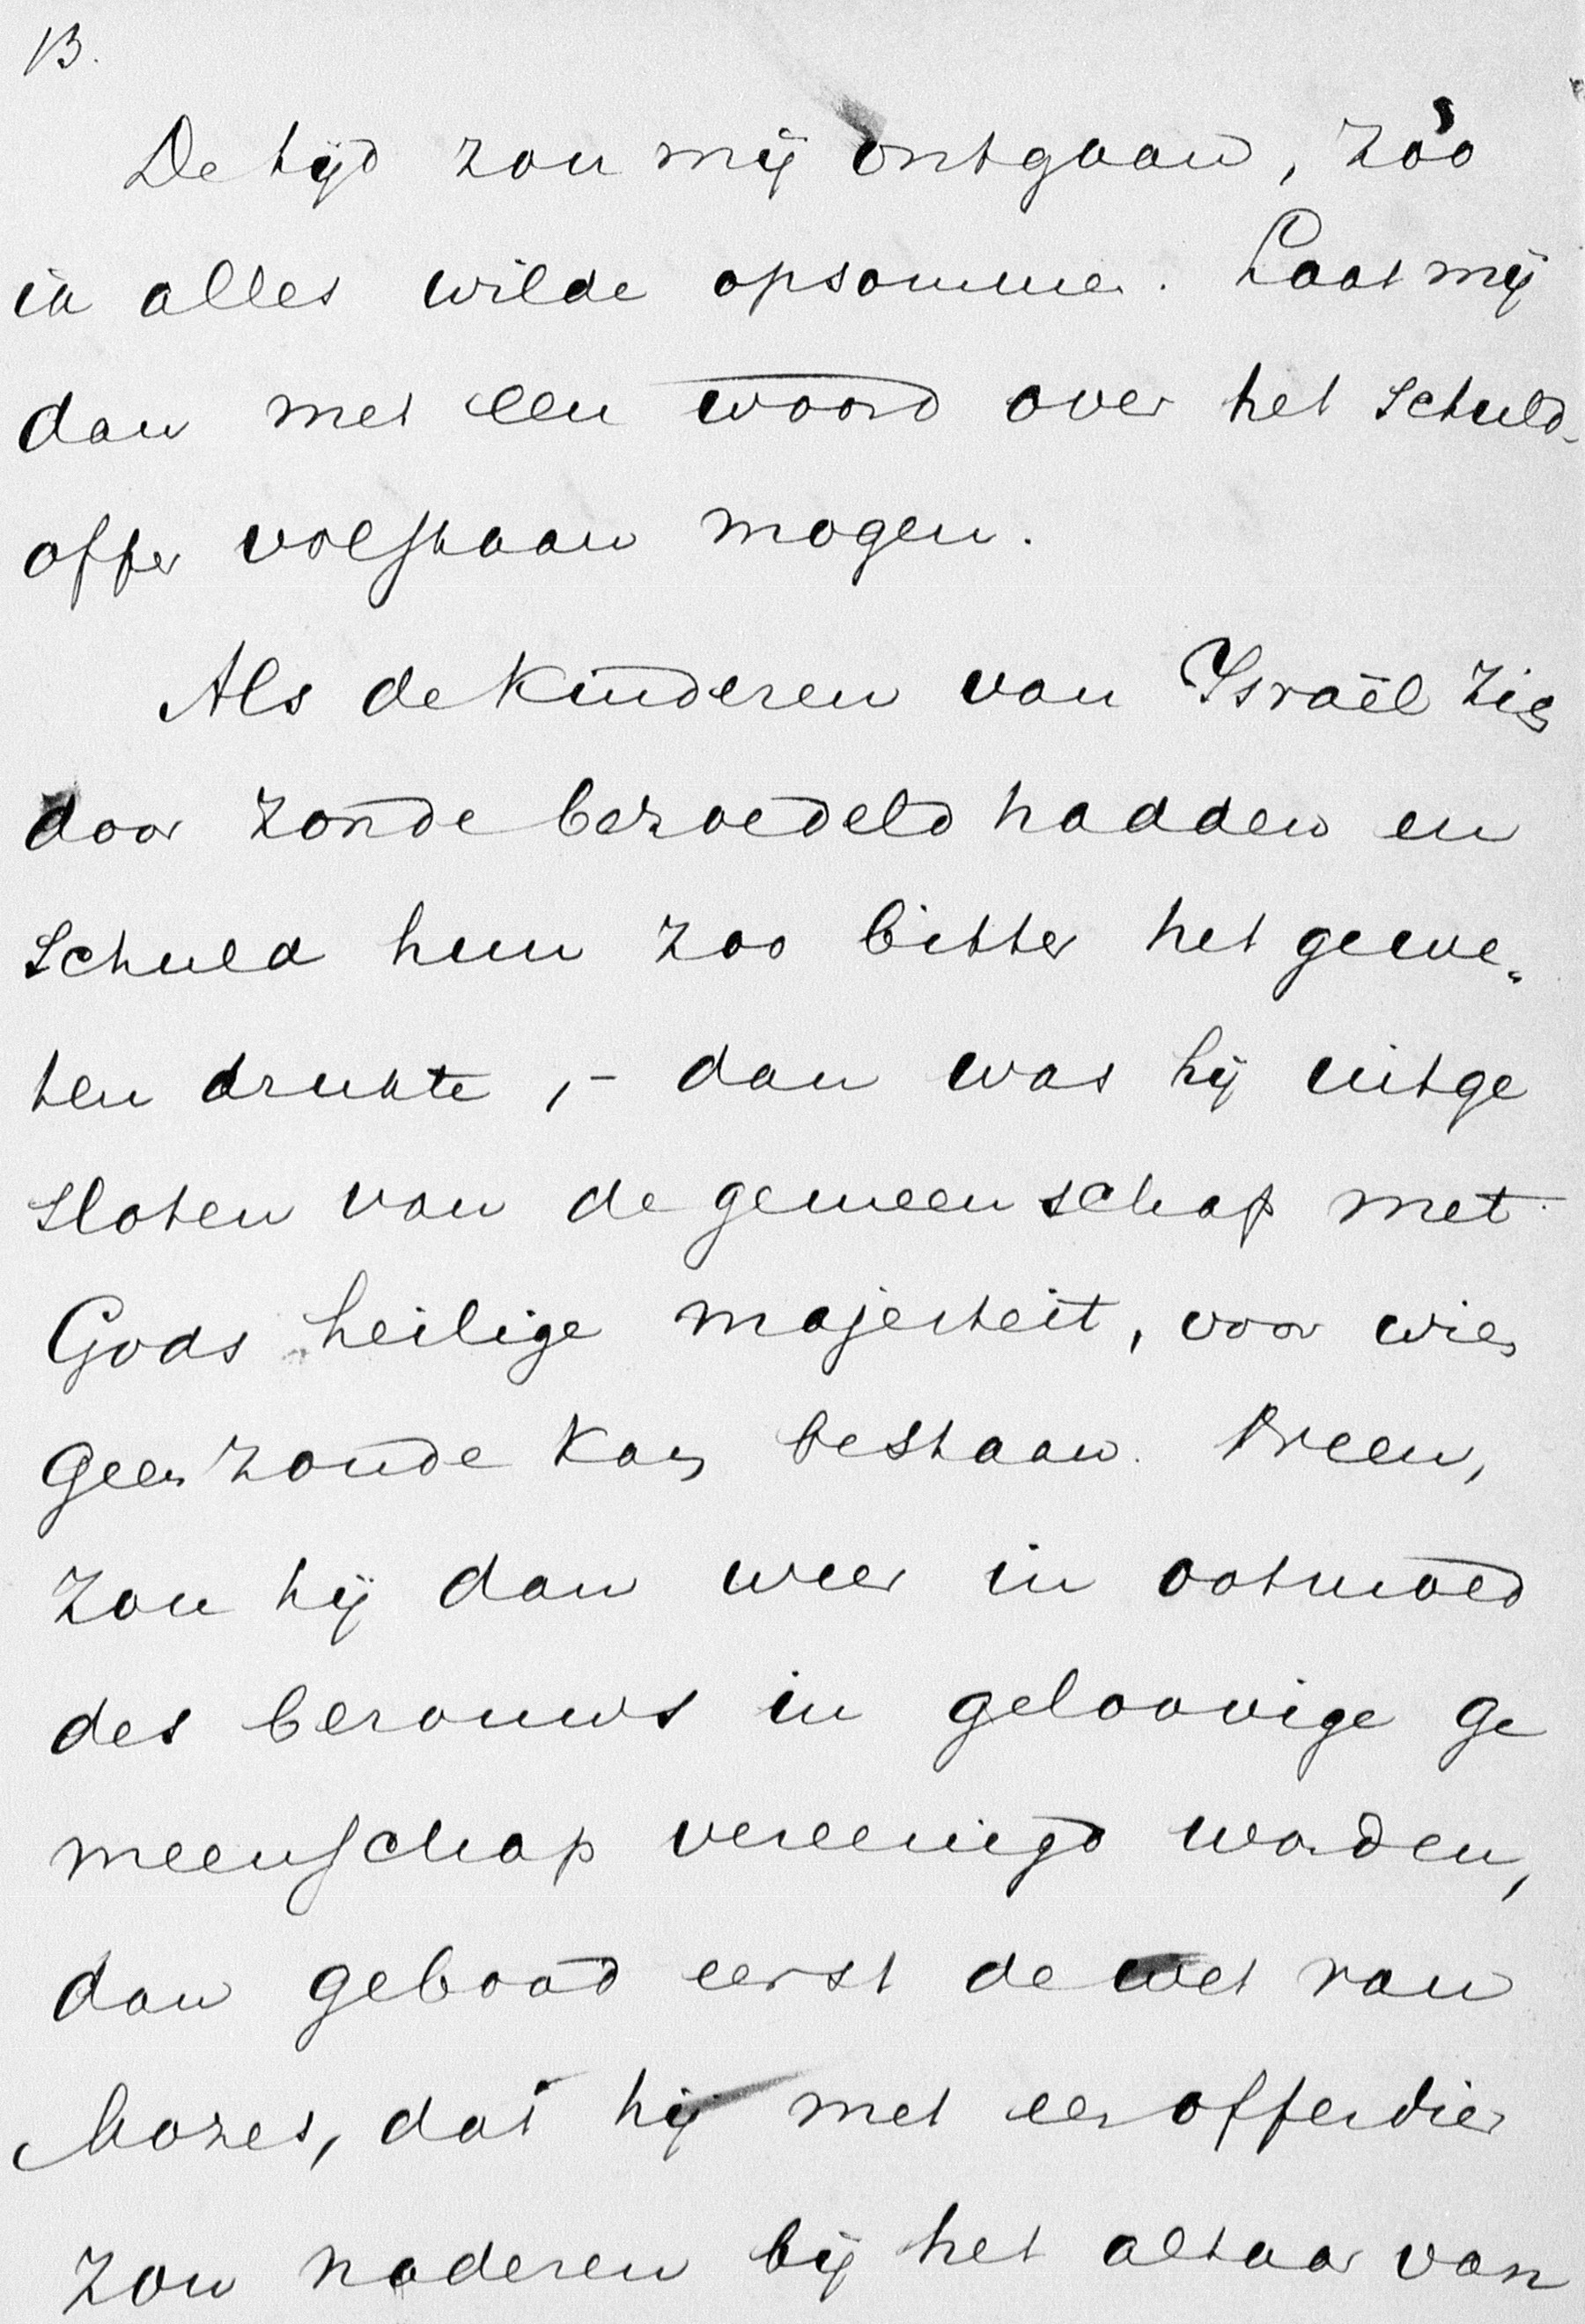 13.
De tijd zou mij ontgaan, zóó
ik alles wilde opsommen. Laat mij
dan met een woord over het schuld-
offer volstaan mogen.
Als de kinderen van Israël zich
door zonde bezoedeld hadden en
schuld hun zoo bitter het gewe-
ten drukte, - dan was hij uitge
sloten van de gemeenschap met
Gods heilige majesteit, voor wien
geen zonde kan bestaan. Neen,
zou hij dan weer in ootmoed
des berouws in geloovige ge
meenschap vereenigd worden,
dan gebood eerst de wet van
Mozes, dat hij met een offerdier
zou naderen bij het altaar van